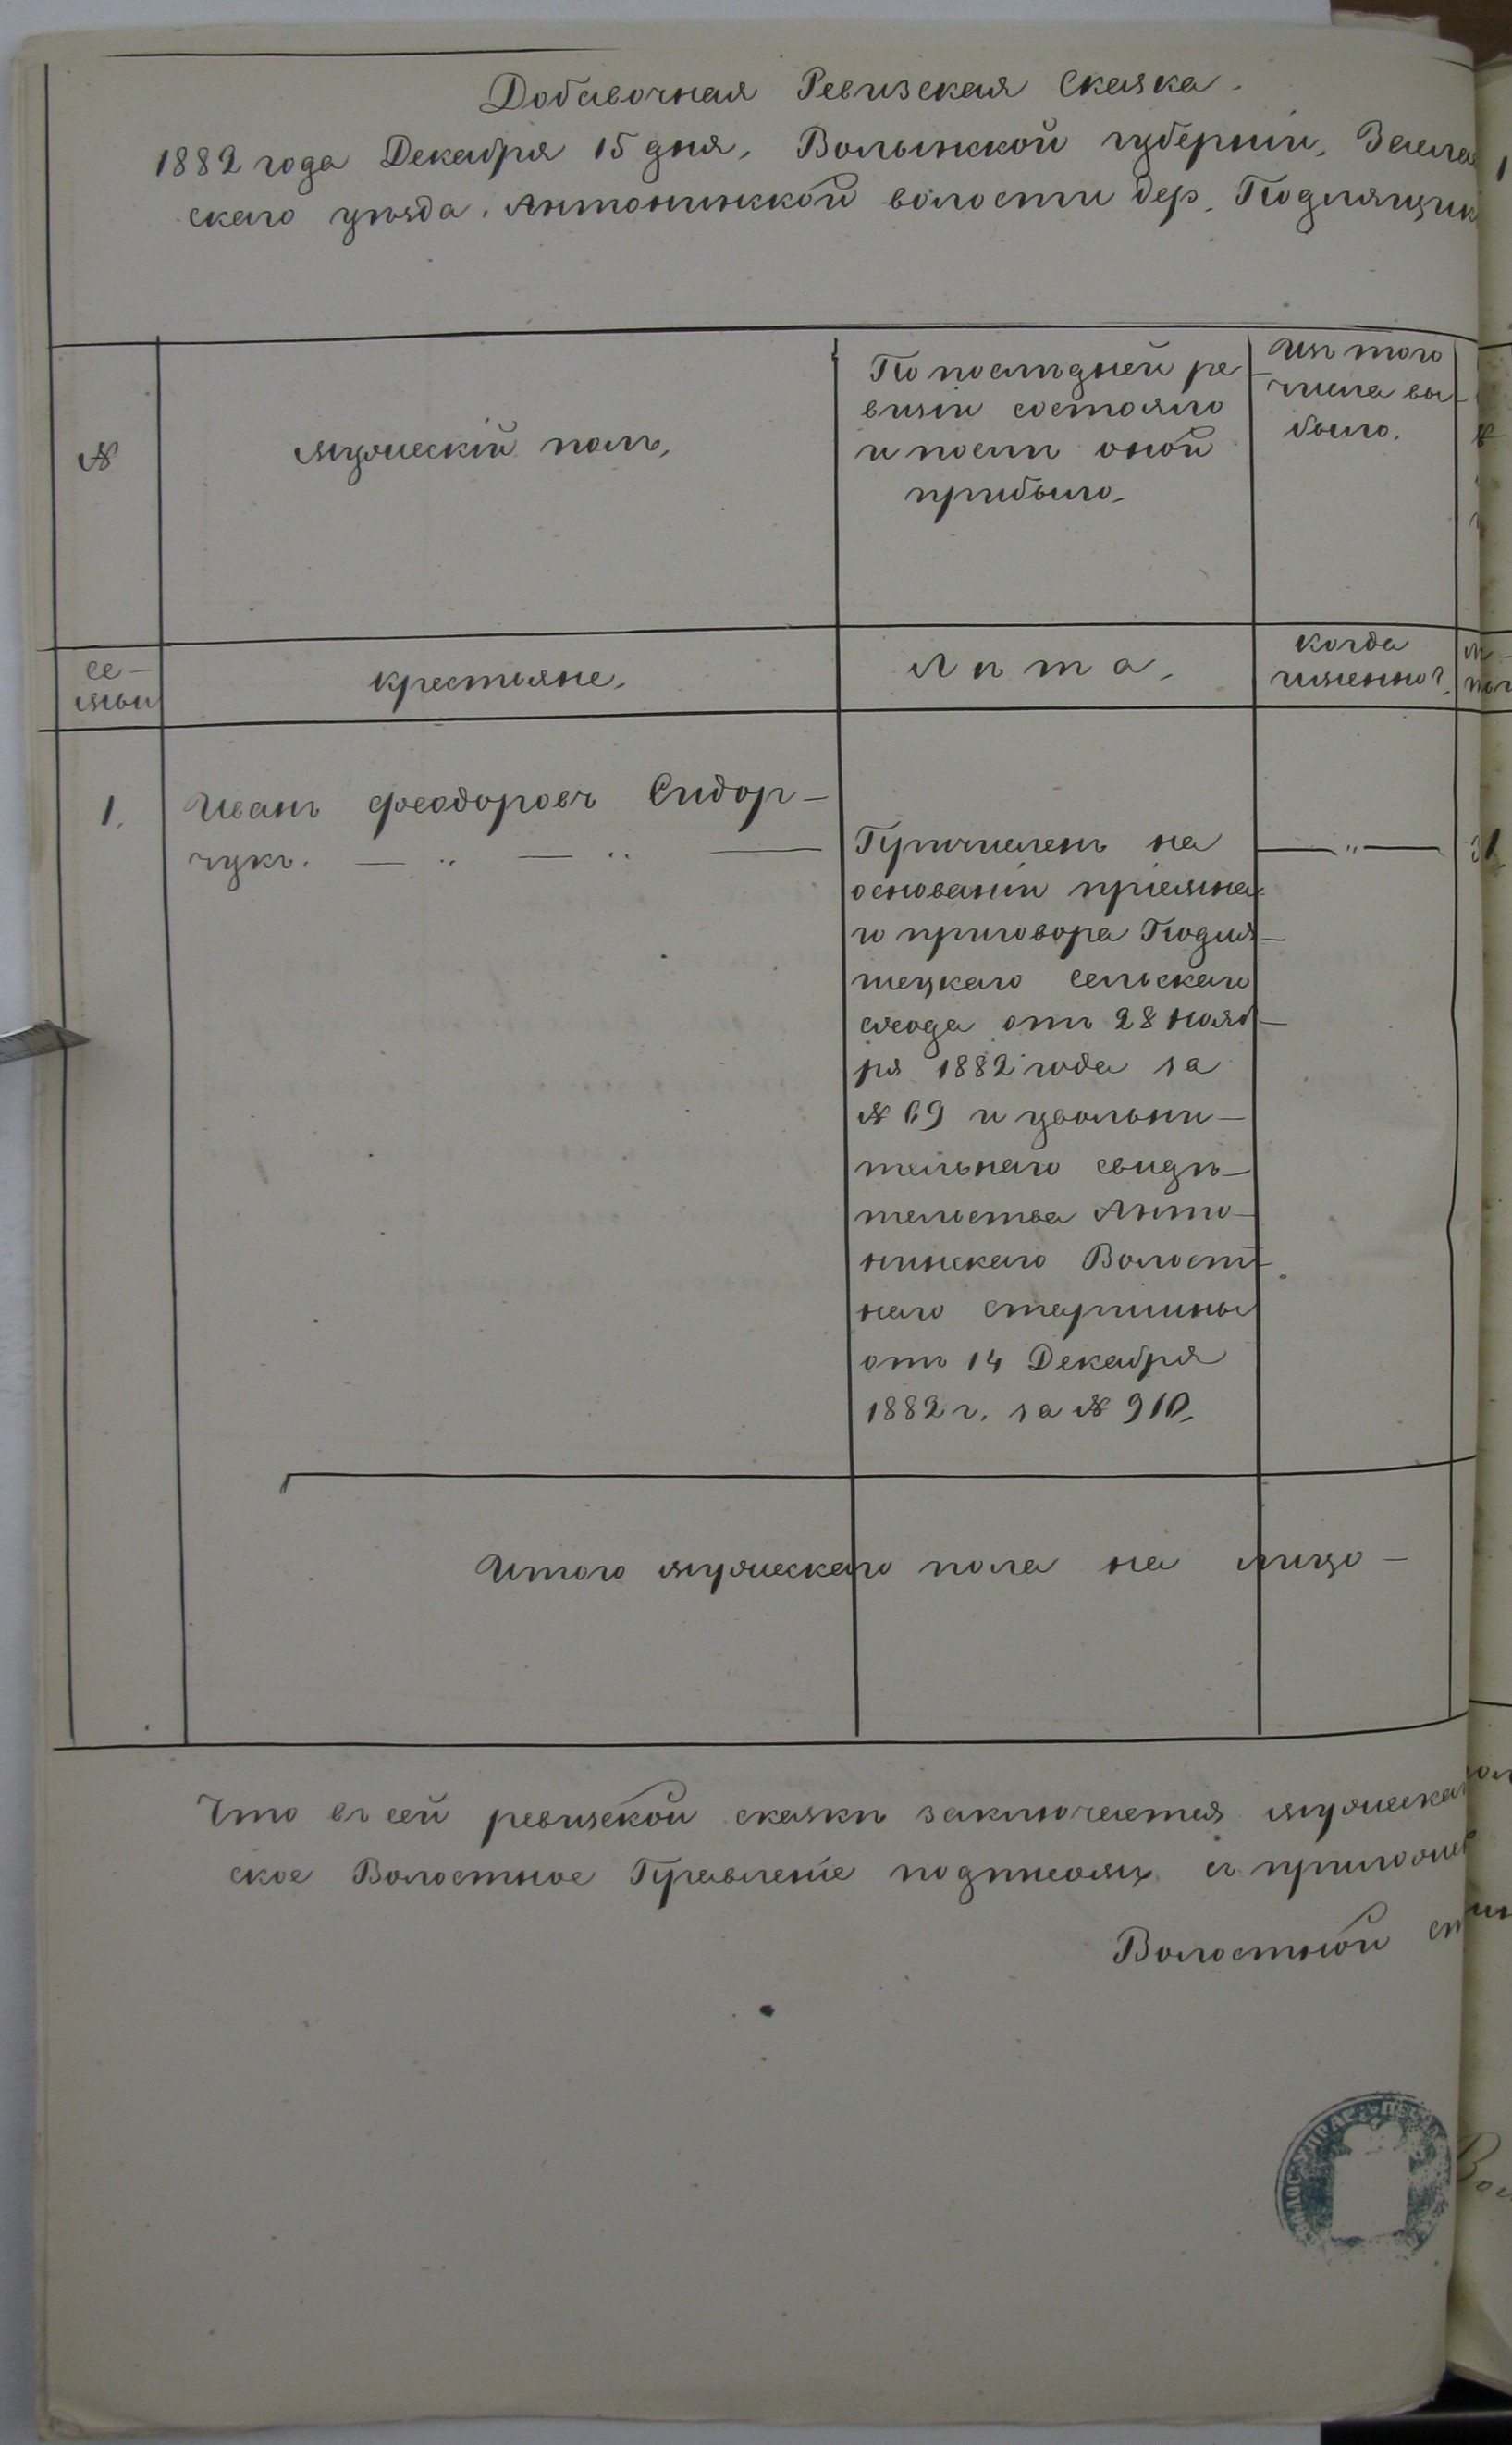 Добавочная Ревизская Сказка.
1882 года Декабря 15 дня, Волынской губерніи, Засла
скаго уѣзда, Антонинской волости дер. Подлящик
№
мужескій полъ,
По послѣдней ре
визіи состояло
и послѣ оной
прибыло.
Изъ того
числа вы-
было.
се-
мьи
крестьяне,
Лѣта,
когда
именно?
1.
Иванъ Феодоровъ Сидор-
чукъ. — „ — „ —
Причисленъ на
основаніи пріемна-
го приговора Подля-
шецкаго Сельскаго
схода отъ 28 Нояб-
ря 1882 года за
№ 69 и увольни-
тельнаго свидѣ-
тельства Анто-
нинскаго Волост-
наго Старшины
отъ 14 Декабря
1882 г. за № 910,
— „ —
Итого мужескаго пола на лицо -
Что въ сей ревизской сказкѣ заключается мужеска
ское Волостное Правленіе подписомъ съ прилож
Волостной Ст
ВОЛОС. ПРАВ.